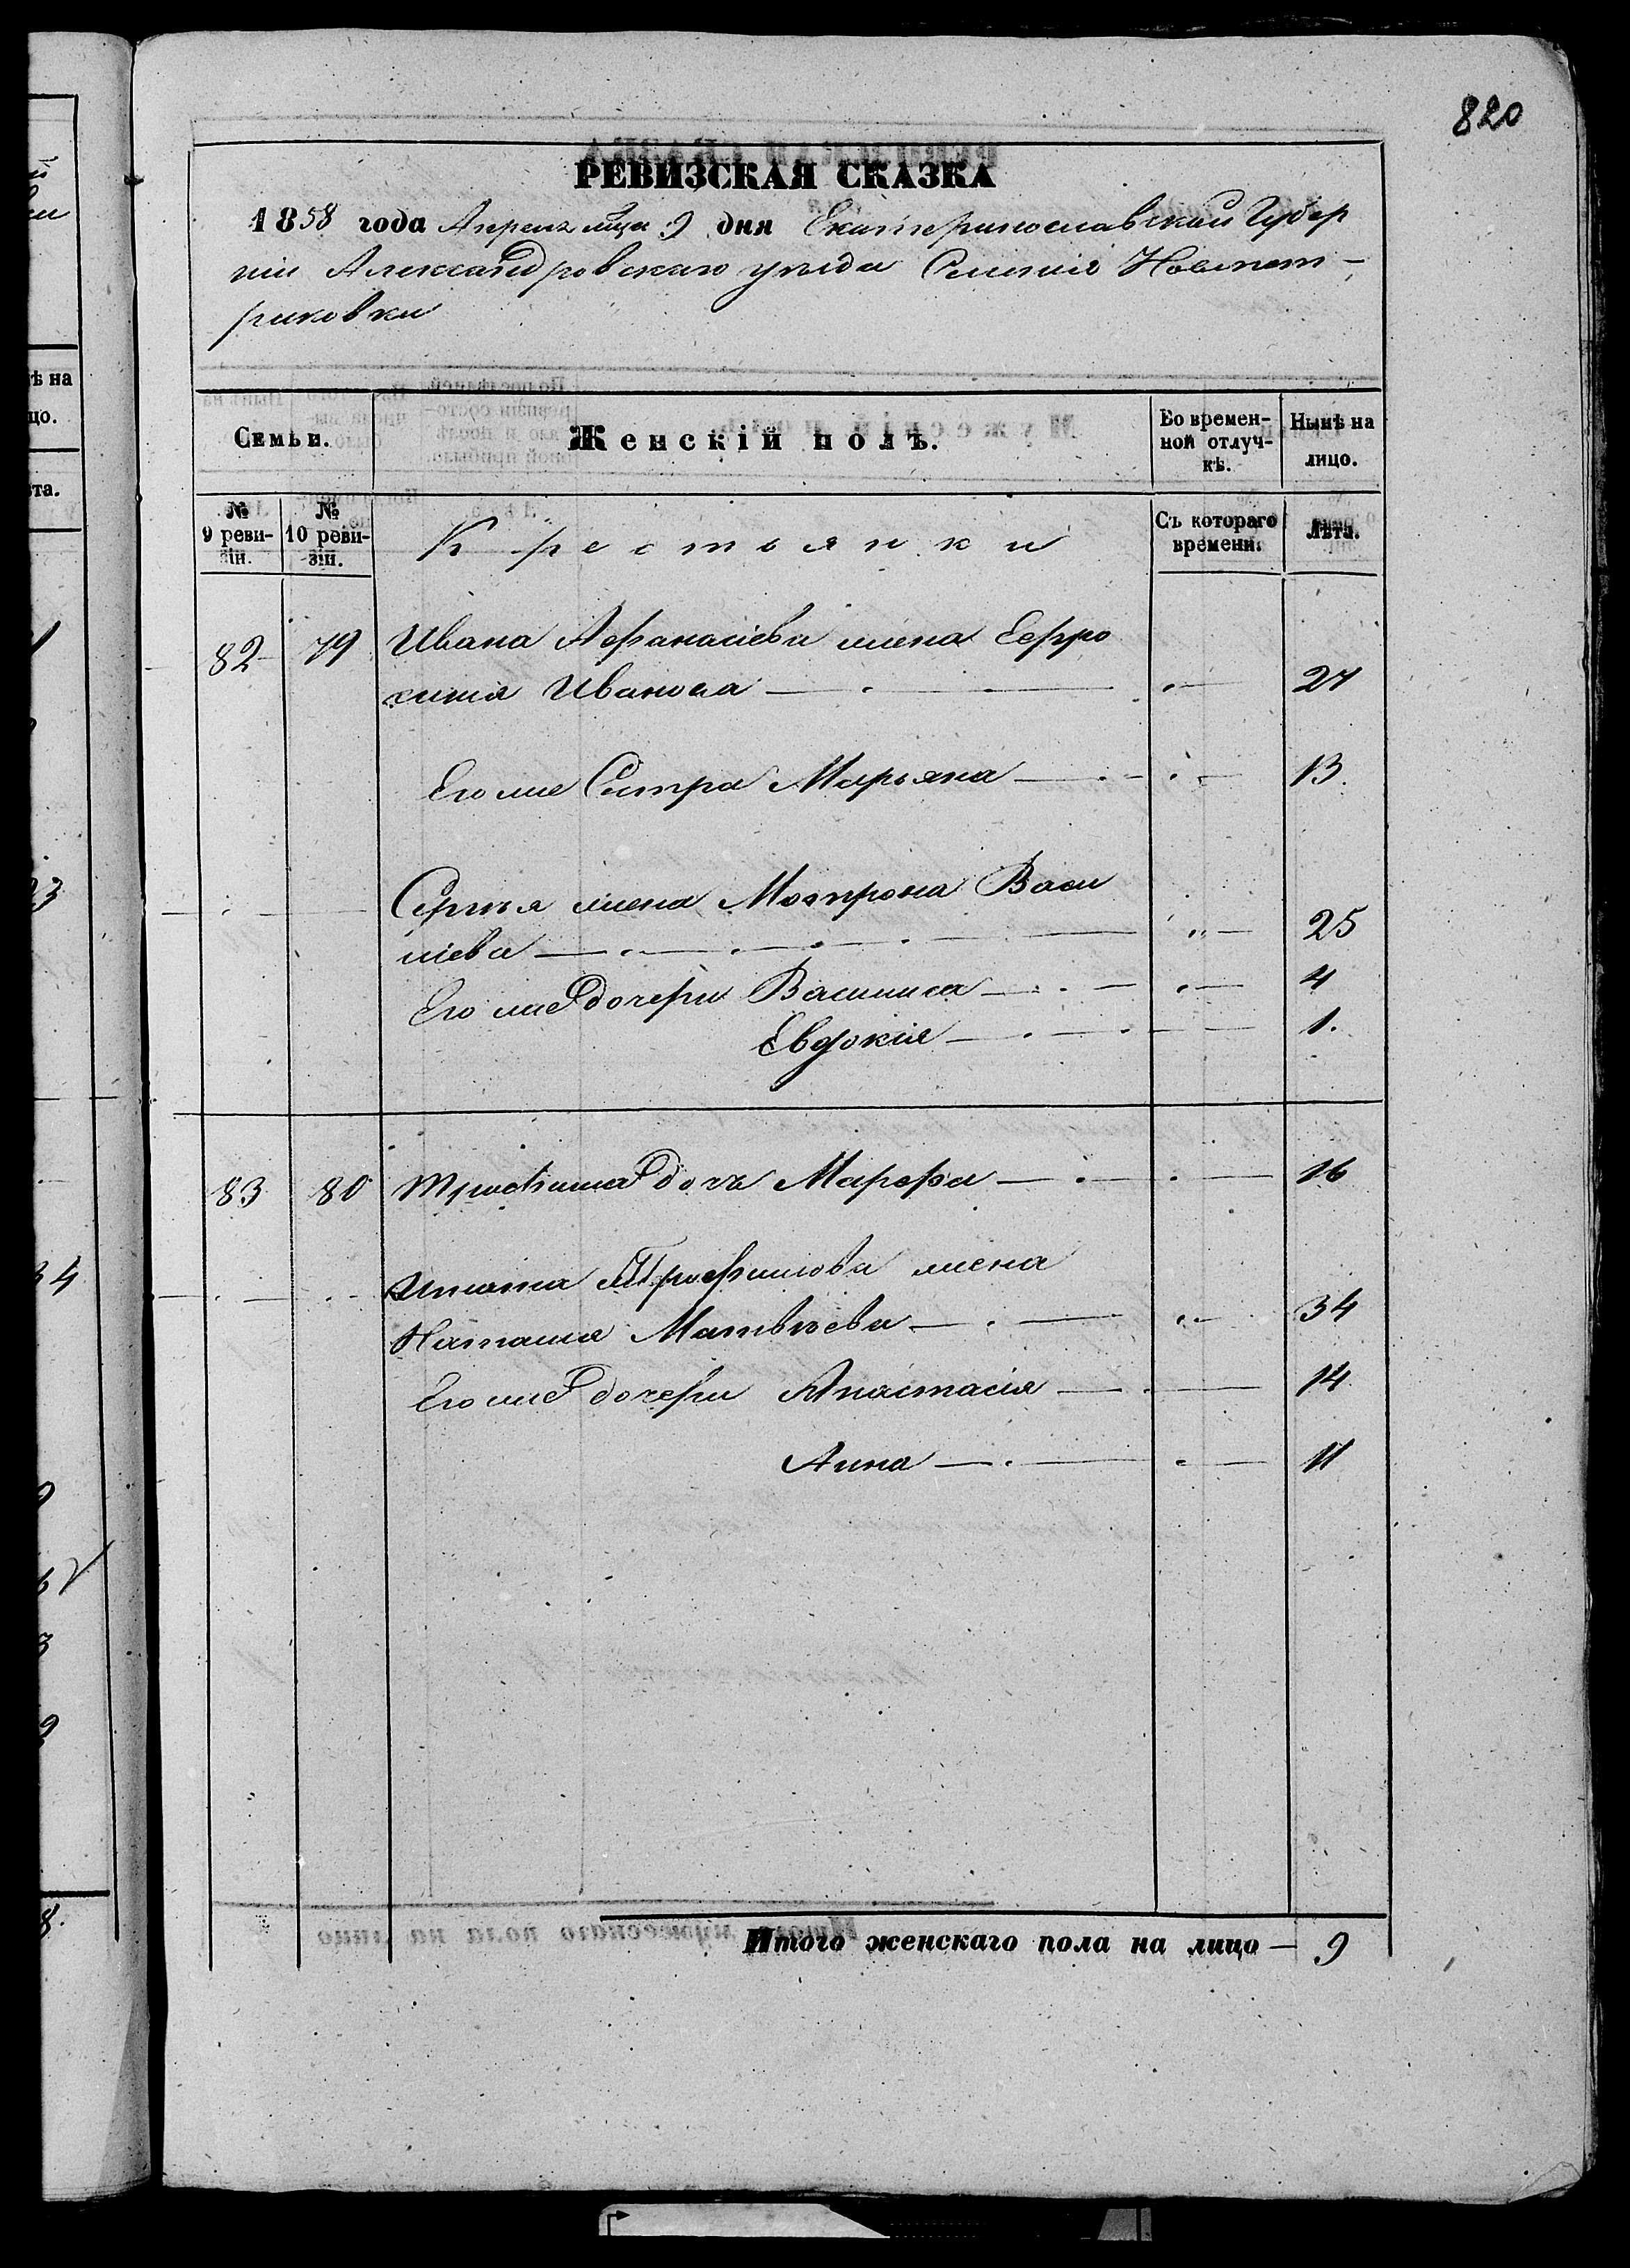 820
РЕВИЗСКАЯ СКАЗКА
1858 года Апреля мца 9 дня Екатеринославской Губер
ніи Александровскаго уѣзда Селенія Новопет-
риковки
Семьи.
Женскій полъ.
Во времен-
ной отлуч-
кѣ.
Нынѣ на
лицо.
№
9 реви-
зіи.
№
10 реви-
зіи.
Крестьянки
Съ котораго
времени.
Лѣта.
82 79 Ивана Афанасіева жена Евфро
синія Иванова — 27
Его же Сестра Марьяна — 13.
Сергѣя жена Мотрона Васи
ліева — 25
Его же дочери Василиса — 4
Евдокія — 1.
83 80 Трофима дочь Марфа — 16
Трофимова жена
Наталія Матвѣева — 34
Его же дочери Анастасія — 14
Анна — 11
Итого женскаго пола на лицо — 9